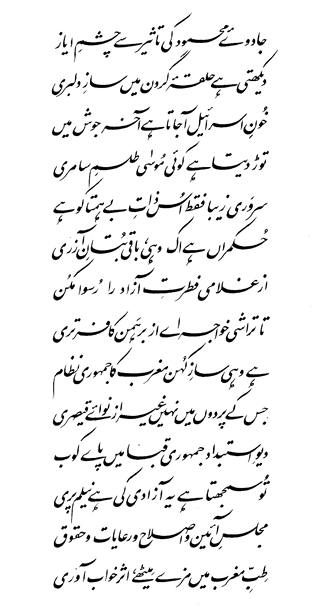 جادوئے محمود کی تاثیر سے چشمِ ایاز
دیکھتی ہے حلقۂ گردن میں سازِ دلبری
خُونِ اسرائیل آجاتا ہے آخر جوش میں
توڑ دیتا ہے کوئی مُوسٰی طلسمِ سامری
سروَری زیبا فقط اُس ذاتِ بے ہمتا کو ہے
حُکمراں ہے اک وہی، باقی بُتانِ آزری
از غلامی فطرتِ آزاد را رُسوا مکُن
تا تراشی خواجہ اے از برہَمن کافر تری
ہے وہی سازِ کُہن مغرب کا جمہوری نظام
جس کے پردوں میں نہیں غیر از نوائے قیصری
دیوِ استبداد جمہوری قبا میں پاے کوب
تُو سمجھتا ہے یہ آزادی کی ہے نیلم پری
مجلسِ آئین و اصلاح و رعایات و حقوق
طِبِّ مغرب میں مزے میٹھے، اثر خواب آوری